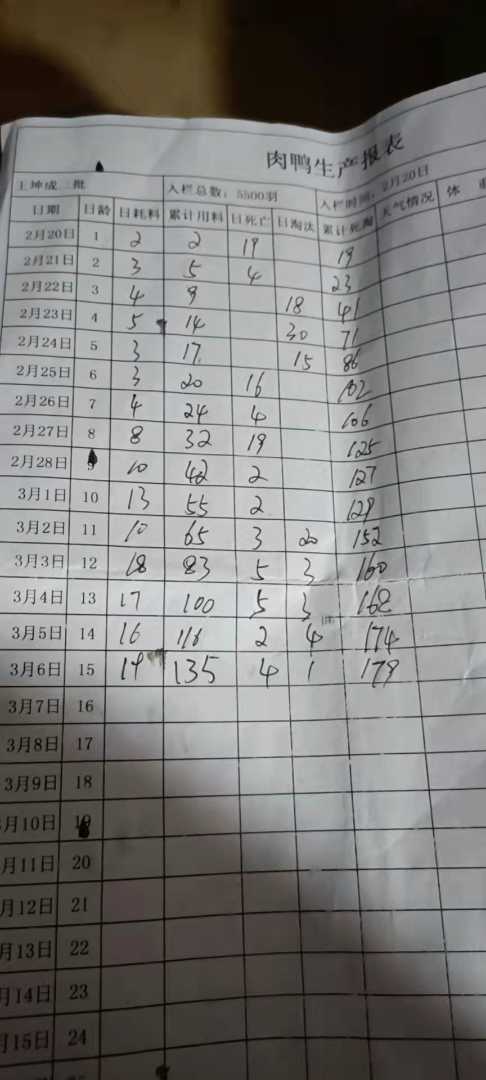 肉鸭生产报表
王坤成二批 入栏总数：5500羽 入栏时间：2月20日
日期 日龄 日耗料 累计用料 日死亡 日淘汰 累计死淘 天气情况 体
2月20日 1 2 2 19 19
2月21日 2 3 5 4 23
2月22日 3 4 9 18 41
2月23日 4 5 14 30 71
2月24日 5 3 17. 15 86
2月25日 6 3 20 16 102
2月26日 7 4 24 4 106
2月27日 8 8 32 19 125
2月28日 9 10 42 2 127
3月1日 10 13 55 2 129
3月2日 11 10 65 3 20 152
3月3日 12 18 83 5 3 160
3月4日 13 17 100 5 3 168
3月5日 14 16 116 2 4 174
3月6日 15 19 135 4 1 179
3月7日 16
3月8日 17
3月9日 18
月10日 19
月11日 20
月12日 21
月13日 22
月14日 23
月15日 24